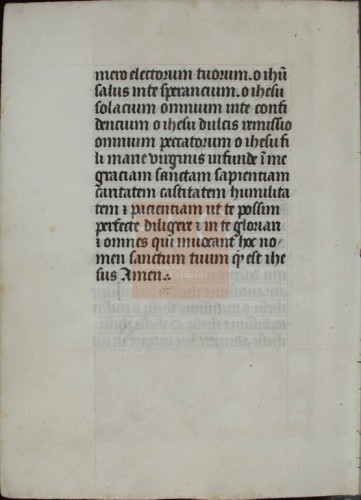 mero electorum tuorum. o ihū
salus in te sperancium. o ihesu
solacium omnium in te confi
dencium o ihesu dulcis remissio
omnium peccatorum o ihesu fi
li marie virginis infunde ī me
graciam sanctam sapientiam
caritatem castitatem humilita
tem ⁊ pacientiam ut te possim
perfecte diligere ⁊ in te gloriari
⁊ omnes qui inuocant hoc no/
men sanctum tuum qd̓ est ihe
sus Amen.